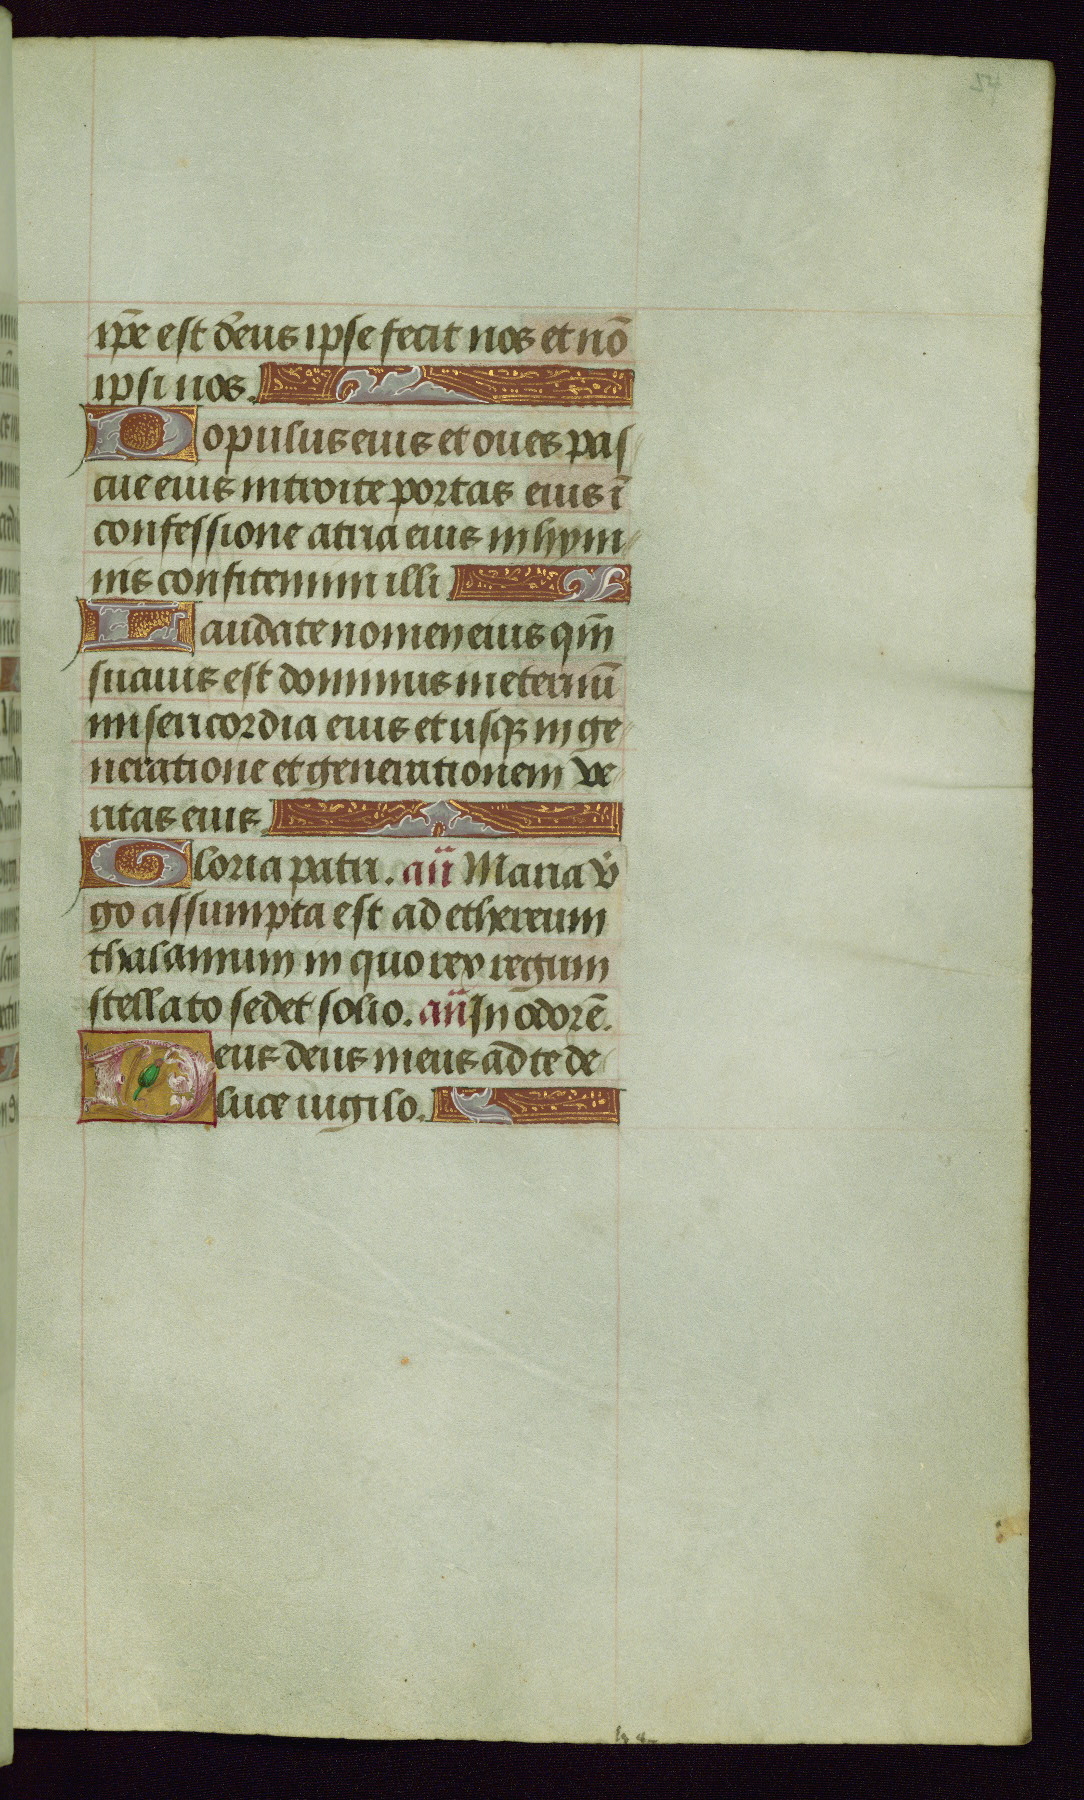 ip̄e est deus ipse fecit nos et nō
ipsi nos.
Populus eius et oues pas
cue eius introite portas eius ī
confessione atria eius in hym
nis confitemini illi
Laudate nomen eius qm̄
suauis est dominus in eternū
misericordia eius et usqꝫ in ge
neratione et generationem ve
ritas eius
Gloria patri. an̄ Maria v̄
go assumpta est ad ethereum
thalamum in quo rex regum
stellato sedet solio. an̄ In odorē.
Deus deus meus ad te de
luce uigilo.